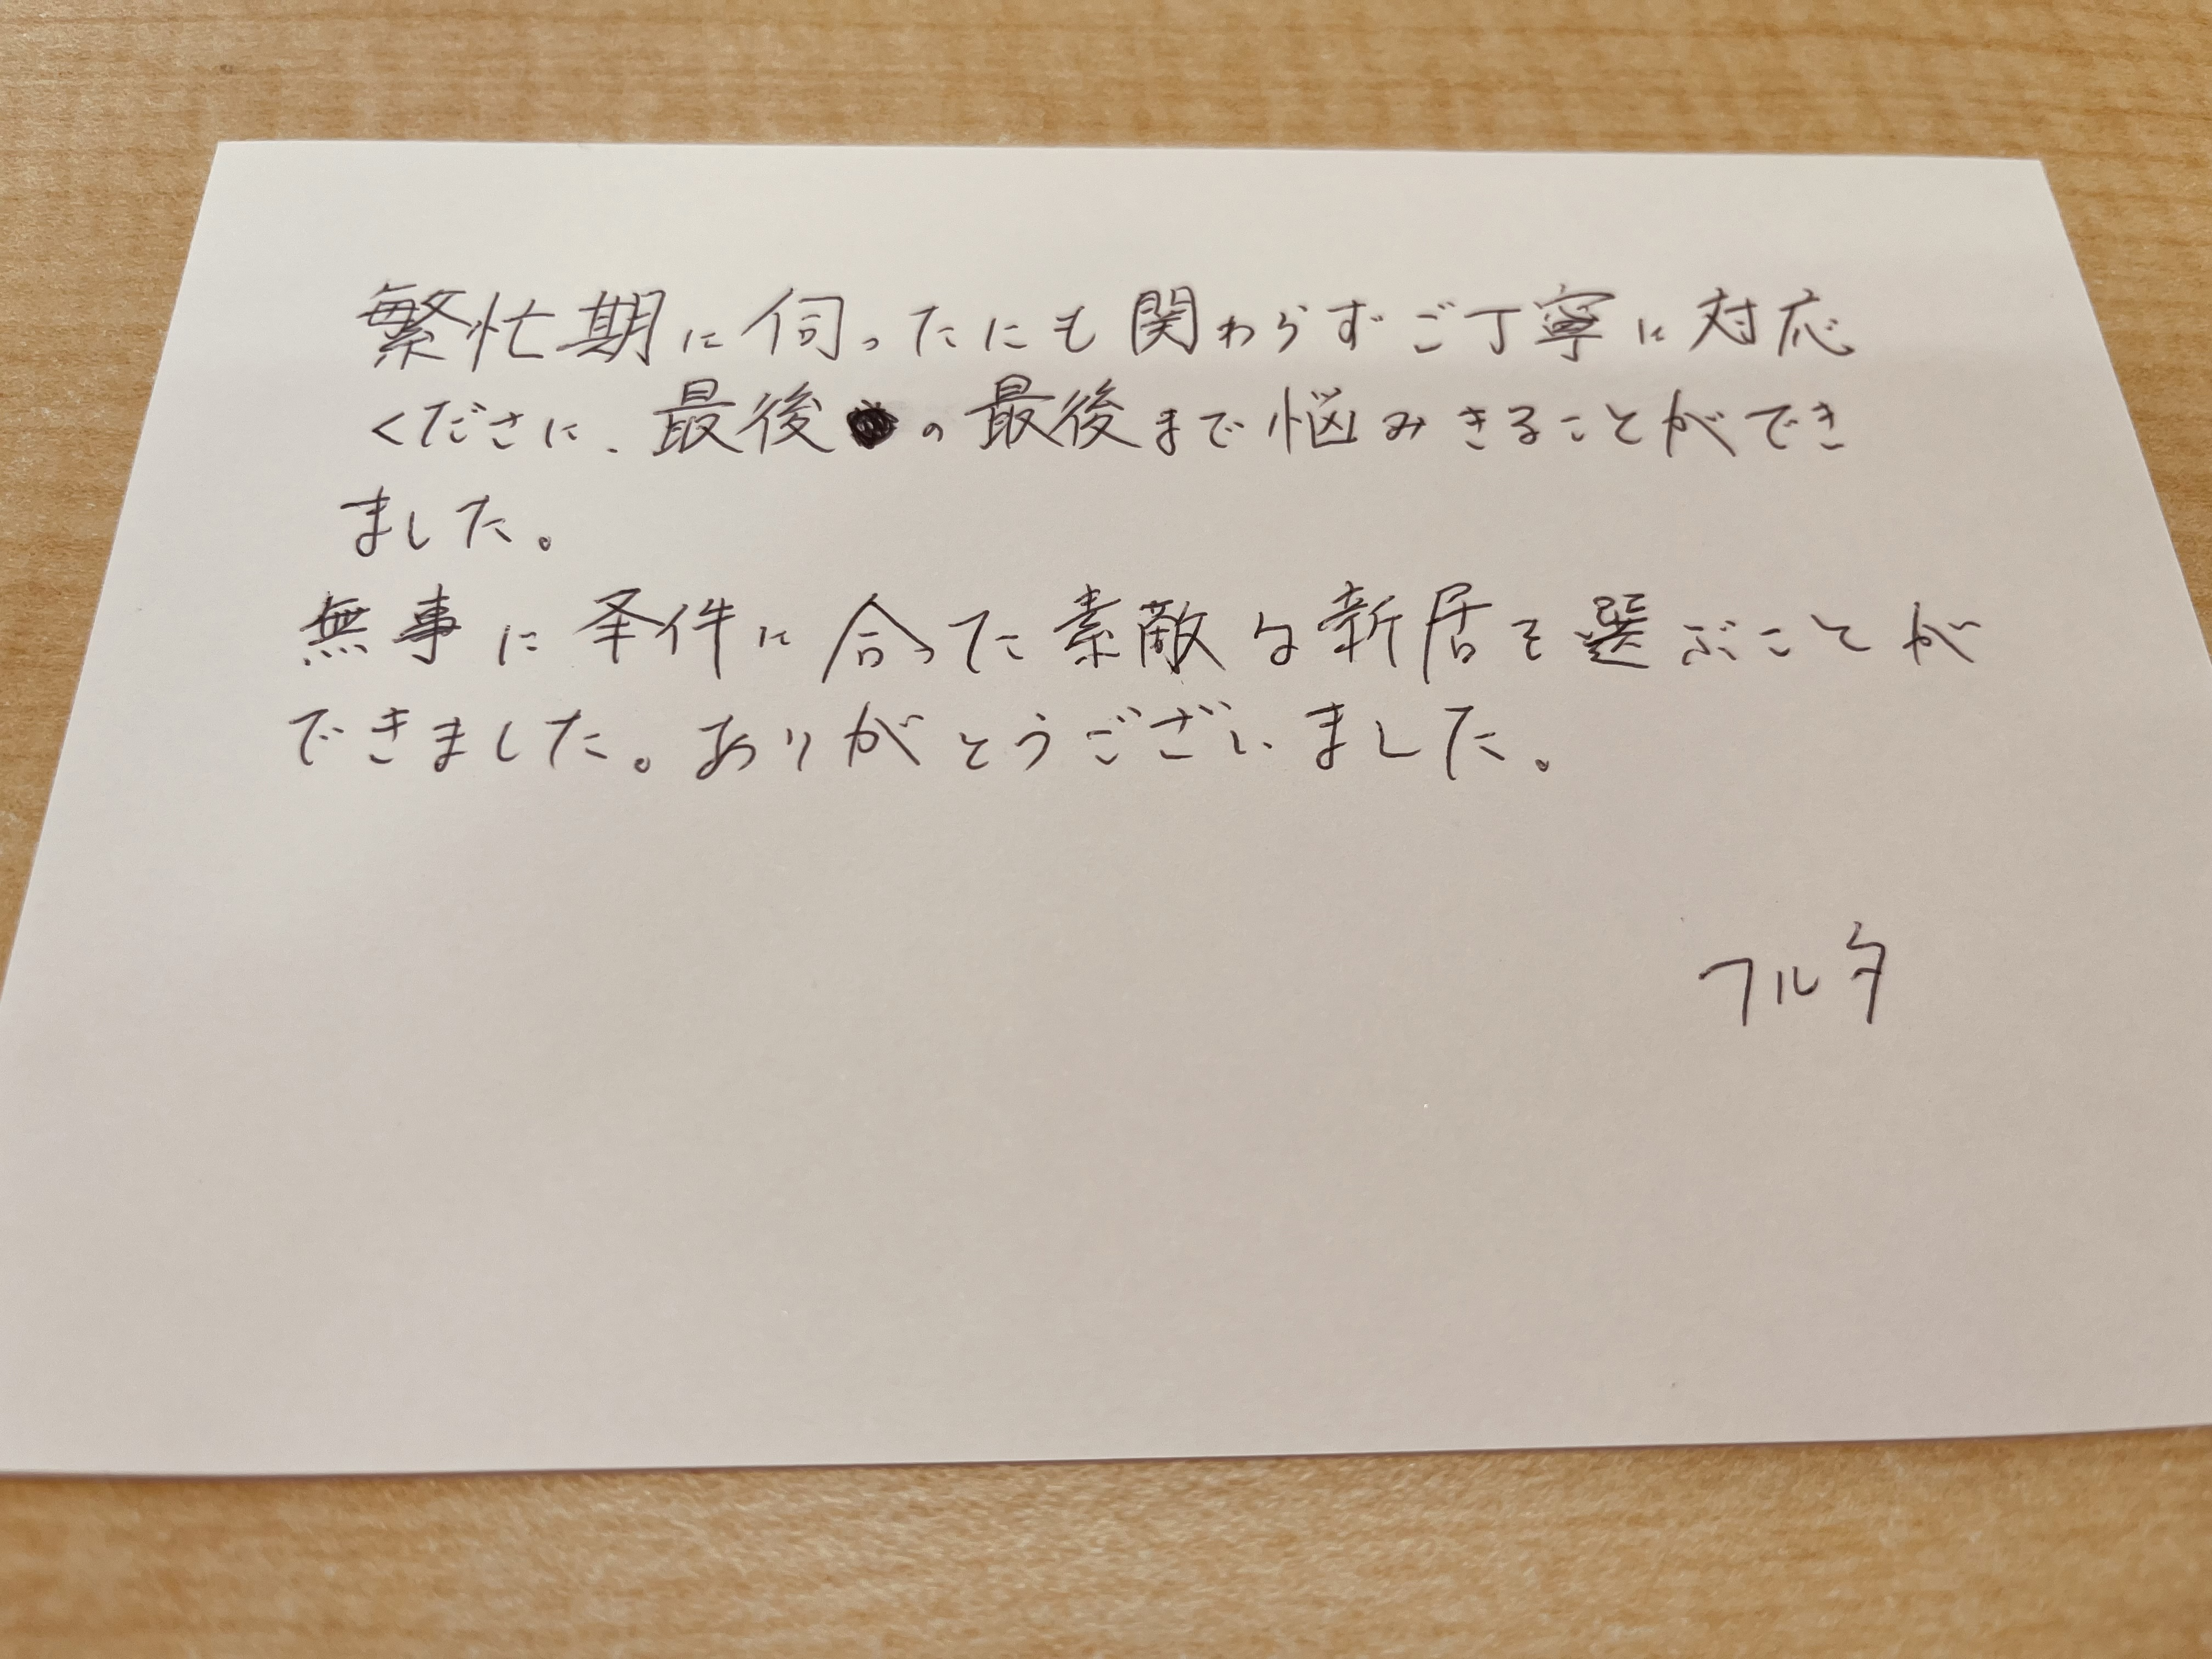 繁忙期に伺ったにも関わらずご丁寧に対応
くださに、最後の最後まで悩みきることができ
ました。
無事に条件に合った素敵な新居を選ぶことが
できました。ありがとうございました。
フルタ